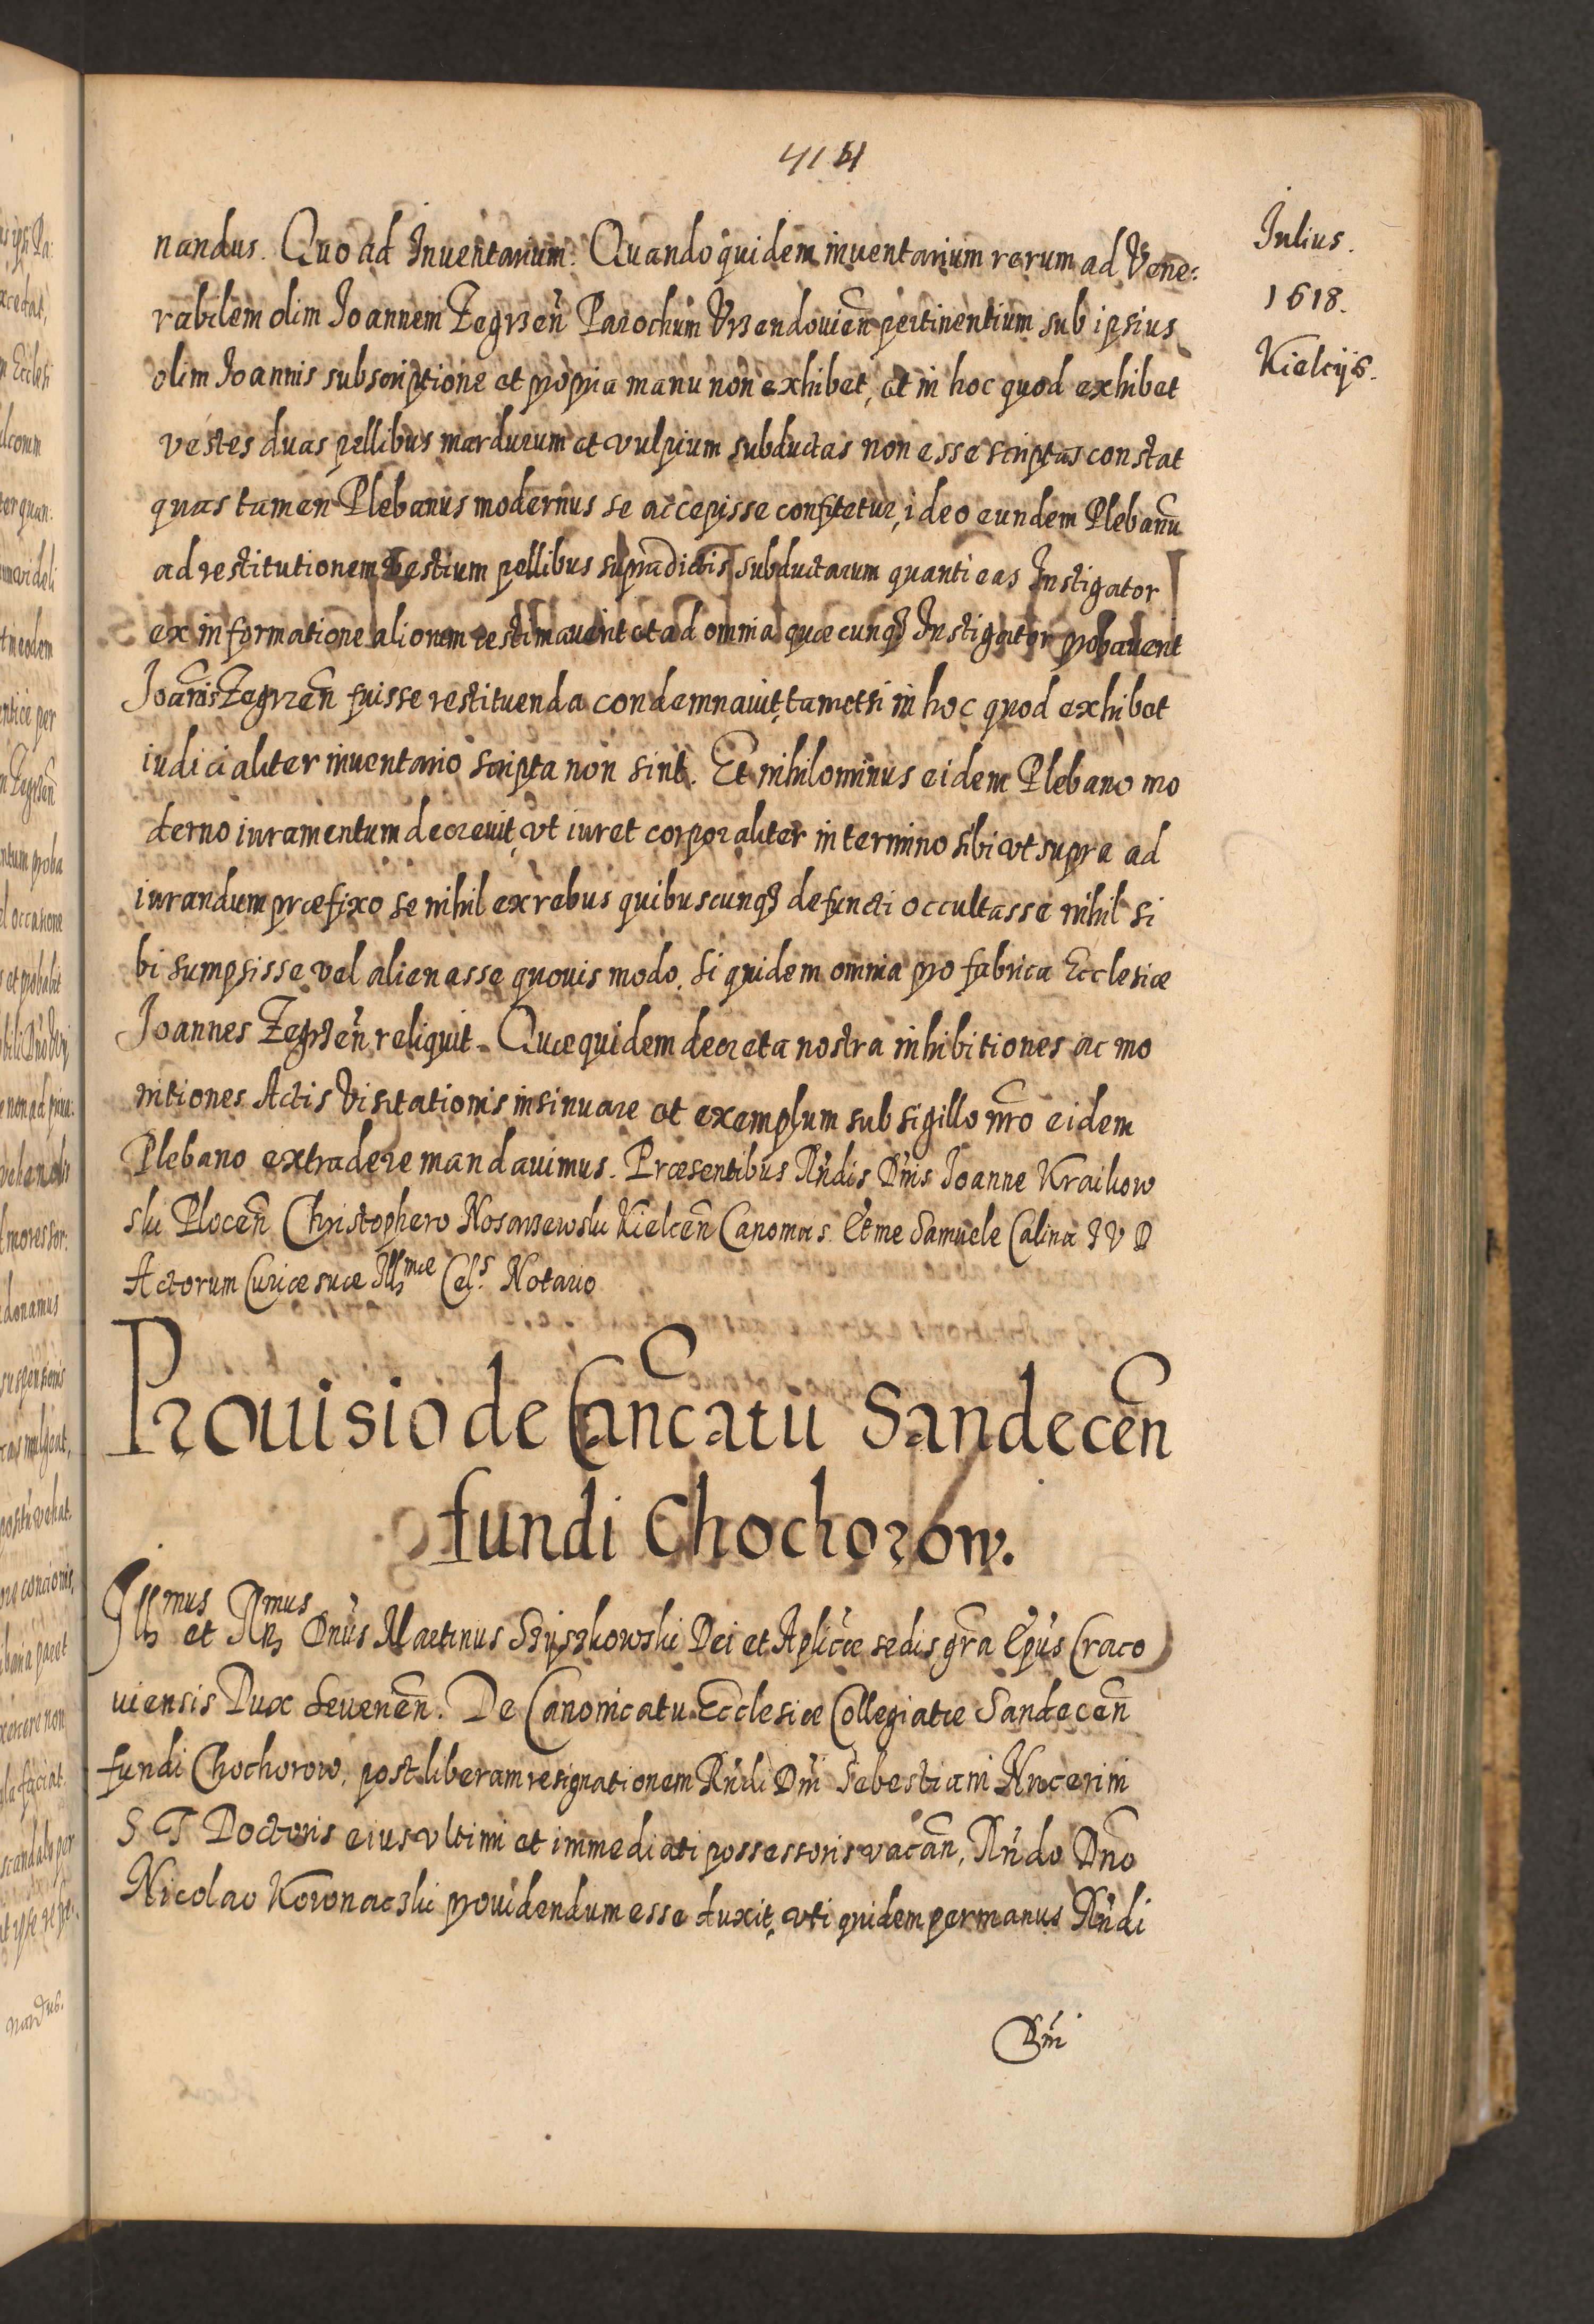 414
Iulius.
1618.
Kielcijs.
nandus. Quo ad Inuentarium. Quandoquidem inuentarium rerum ad Vene:
rabilem olim Joannem Zegrzeñ Parochum Vrzendouieñ pertinentium sub ipsius
olim Joannis subscriptione et propria manu non exhibet, et in hoc quod exhibet
vestes duas pellibus mardurum et vulpium subductas non esse scriptas constat
quas tamen Plebanus modernus se accepisse confitetur, ideo eundem Plebanũ
ad restitutionem vestium pellibus supradictis subductarum quanti eas Instigator
ex informatione aliorum æstimauerit et ad omnia quæcunqȝ Instigator probauerit
Joãnis Zegrzeñ fuisse restituenda condemnauit, tametsi in hoc quod exhibet
iudicialiter inuentario scripta non sint. Et nihilominus eidem Plebano mo
derno iuramentum decreuit, vt iuret corporaliter in termino sibi vt supra ad
iurandum præfixo se nihil ex rebus quibuscunqȝ defuncti occultasse nihil si
bi sumpsisse vel alienasse quouis modo. Si quidem omnia pro fabrica Ecclesiæ
Joannes Zegrzeñ reliquit. Quæ quidem decreta nostra inhibitiones ac mo
nitiones Actis Visitationis insinuare et exemplum sub sigillo nr̃o eidem
Plebano extradere mandauimus. Præsentibus Rñdis Dñis Joanne Kraikow
ski Ploceñ Christophero Nosarzewski Kielceñ Canonicis. Et me Samuele Calina I V D
Actorum Curiæ suæ Illmæ Cels. Notario
Prouisio de Cañcatu Sandeceñ
fundi Chochorow.
Illmus et Rmus Dñus Martinus Szyszkowski Dei et Aplicæ sedis gr̃a Ep̃us Craco
uiensis Dux Seuerieñ. De Canonicatu Ecclesiæ Collegiatæ Sandeceñ
fundi Chochorow, post liberam resignationem Rñdi Dñi Sebestiani Nucerini
S T Doctoris eius vltimi et immediati possessoris vacañ, Rñdo Dño
Nicolao Koronaczki prouidendum esse duxit, vti quidem per manus Rñdi
Dñi